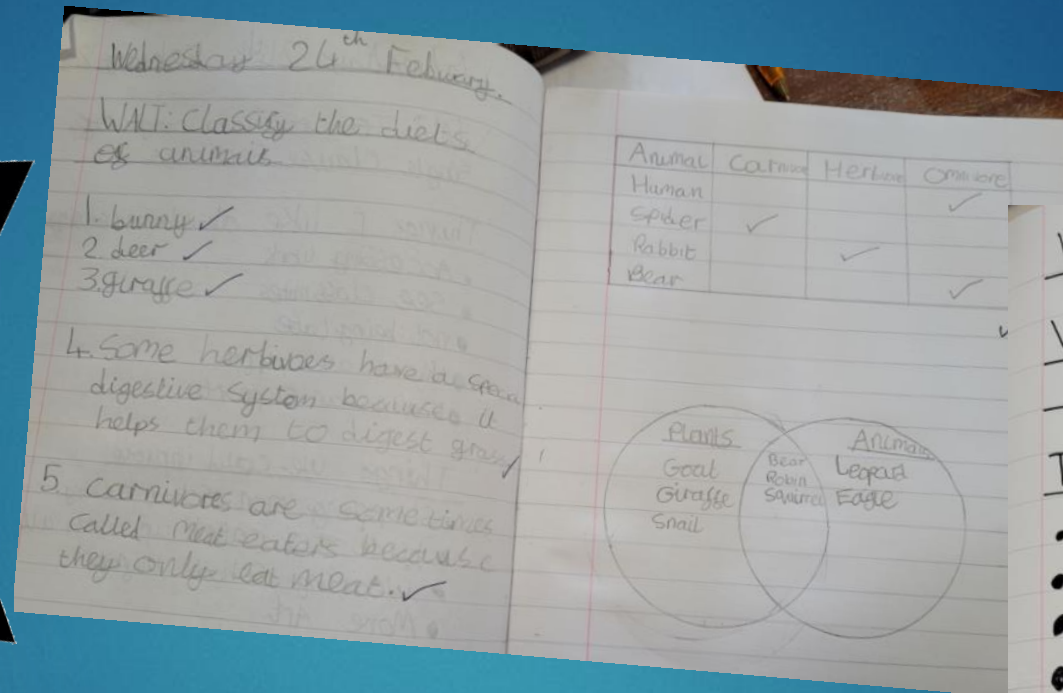 Wednesday 24th Febuary.
WALT: Classify the diets
of animals
1. bunny ✓
2. deer ✓
3. giraffe ✓
4. Some herbivoes have a special
digestive system because it
helps them to digest grass
5. Carnivores are sometimes
called meat eaters because
they only eat meat. ✓
Animal Carnivore Herbivore Omnivore
Human ✓
Spider ✓
Rabbit ✓
Bear ✓
Plants Animals
Goat Bear Leopard
Giraffe Robin Eagle
Snail Squirrel